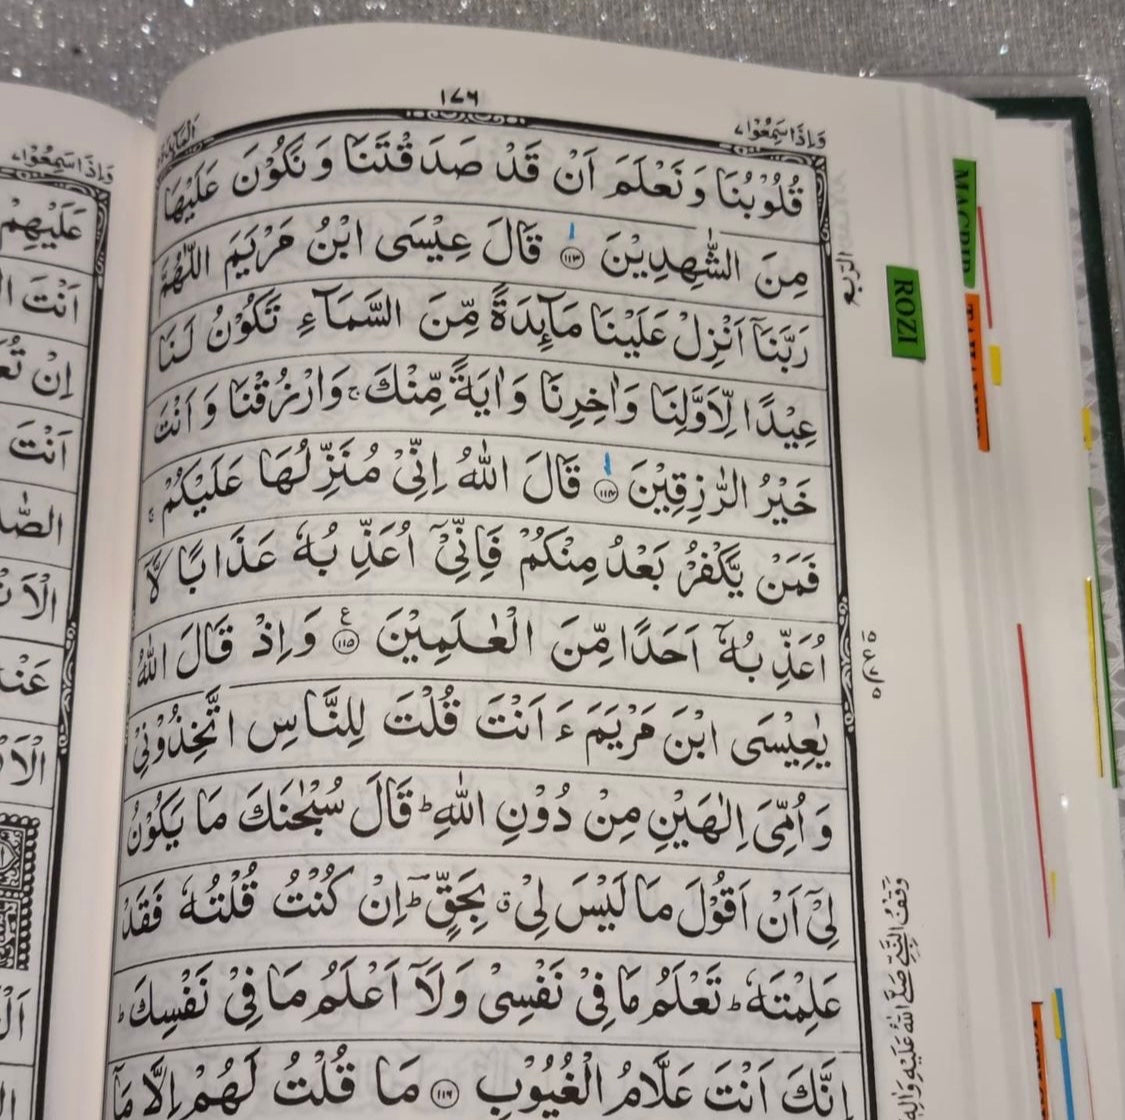 ١٧٦
وَاِذَا سَمِعُوْا ٧
قُلُوْبُنَا وَنَعْلَمَ اَنْ قَدْ صَدَقْتَنَا وَنَكُوْنَ عَلَيْهَا
مِنَ الشّٰهِدِيْنَ ۝١١٣ قَالَ عِيْسَى ابْنُ مَرْيَمَ اللّٰهُمَّ
رَبَّنَاۤ اَنْزِلْ عَلَيْنَا مَآىِٕدَةً مِّنَ السَّمَآءِ تَكُوْنُ لَنَا
عِيْدًا لِّاَوَّلِنَا وَاٰخِرِنَا وَاٰيَةً مِّنْكَ ۚ وَارْزُقْنَا وَاَنْتَ
خَيْرُ الرّٰزِقِيْنَ ۝١١٤ قَالَ اللّٰهُ اِنِّيْ مُنَزِّلُهَا عَلَيْكُمْ ۚ
فَمَنْ يَّكْفُرْ بَعْدُ مِنْكُمْ فَاِنِّيْۤ اُعَذِّبُهٗ عَذَابًا لَّاۤ
اُعَذِّبُهٗۤ اَحَدًا مِّنَ الْعٰلَمِيْنَ ۝١١٥ ع وَاِذْ قَالَ اللّٰهُ
يٰعِيْسَى ابْنَ مَرْيَمَ ءَاَنْتَ قُلْتَ لِلنَّاسِ اتَّخِذُوْنِيْ
وَاُمِّيَ اِلٰهَيْنِ مِنْ دُوْنِ اللّٰهِ ؕ قَالَ سُبْحٰنَكَ مَا يَكُوْنُ
لِيْۤ اَنْ اَقُوْلَ مَا لَيْسَ لِيْ ۗ بِحَقٍّ ؕ اِنْ كُنْتُ قُلْتُهٗ فَقَدْ
عَلِمْتَهٗ ؕ تَعْلَمُ مَا فِيْ نَفْسِيْ وَلَاۤ اَعْلَمُ مَا فِيْ نَفْسِكَ ؕ
اِنَّكَ اَنْتَ عَلَّامُ الْغُيُوْبِ ۝١١٦ مَا قُلْتُ لَهُمْ اِلَّا مَاۤ
الربع
وقف النبي صلى الله عليه واله
MAGRIB
ROZI
وَاِذَا سَمِعُوْا ٧
عَلَيْهِمْ
اَنْتَ
اِنْ
اَنْتَ